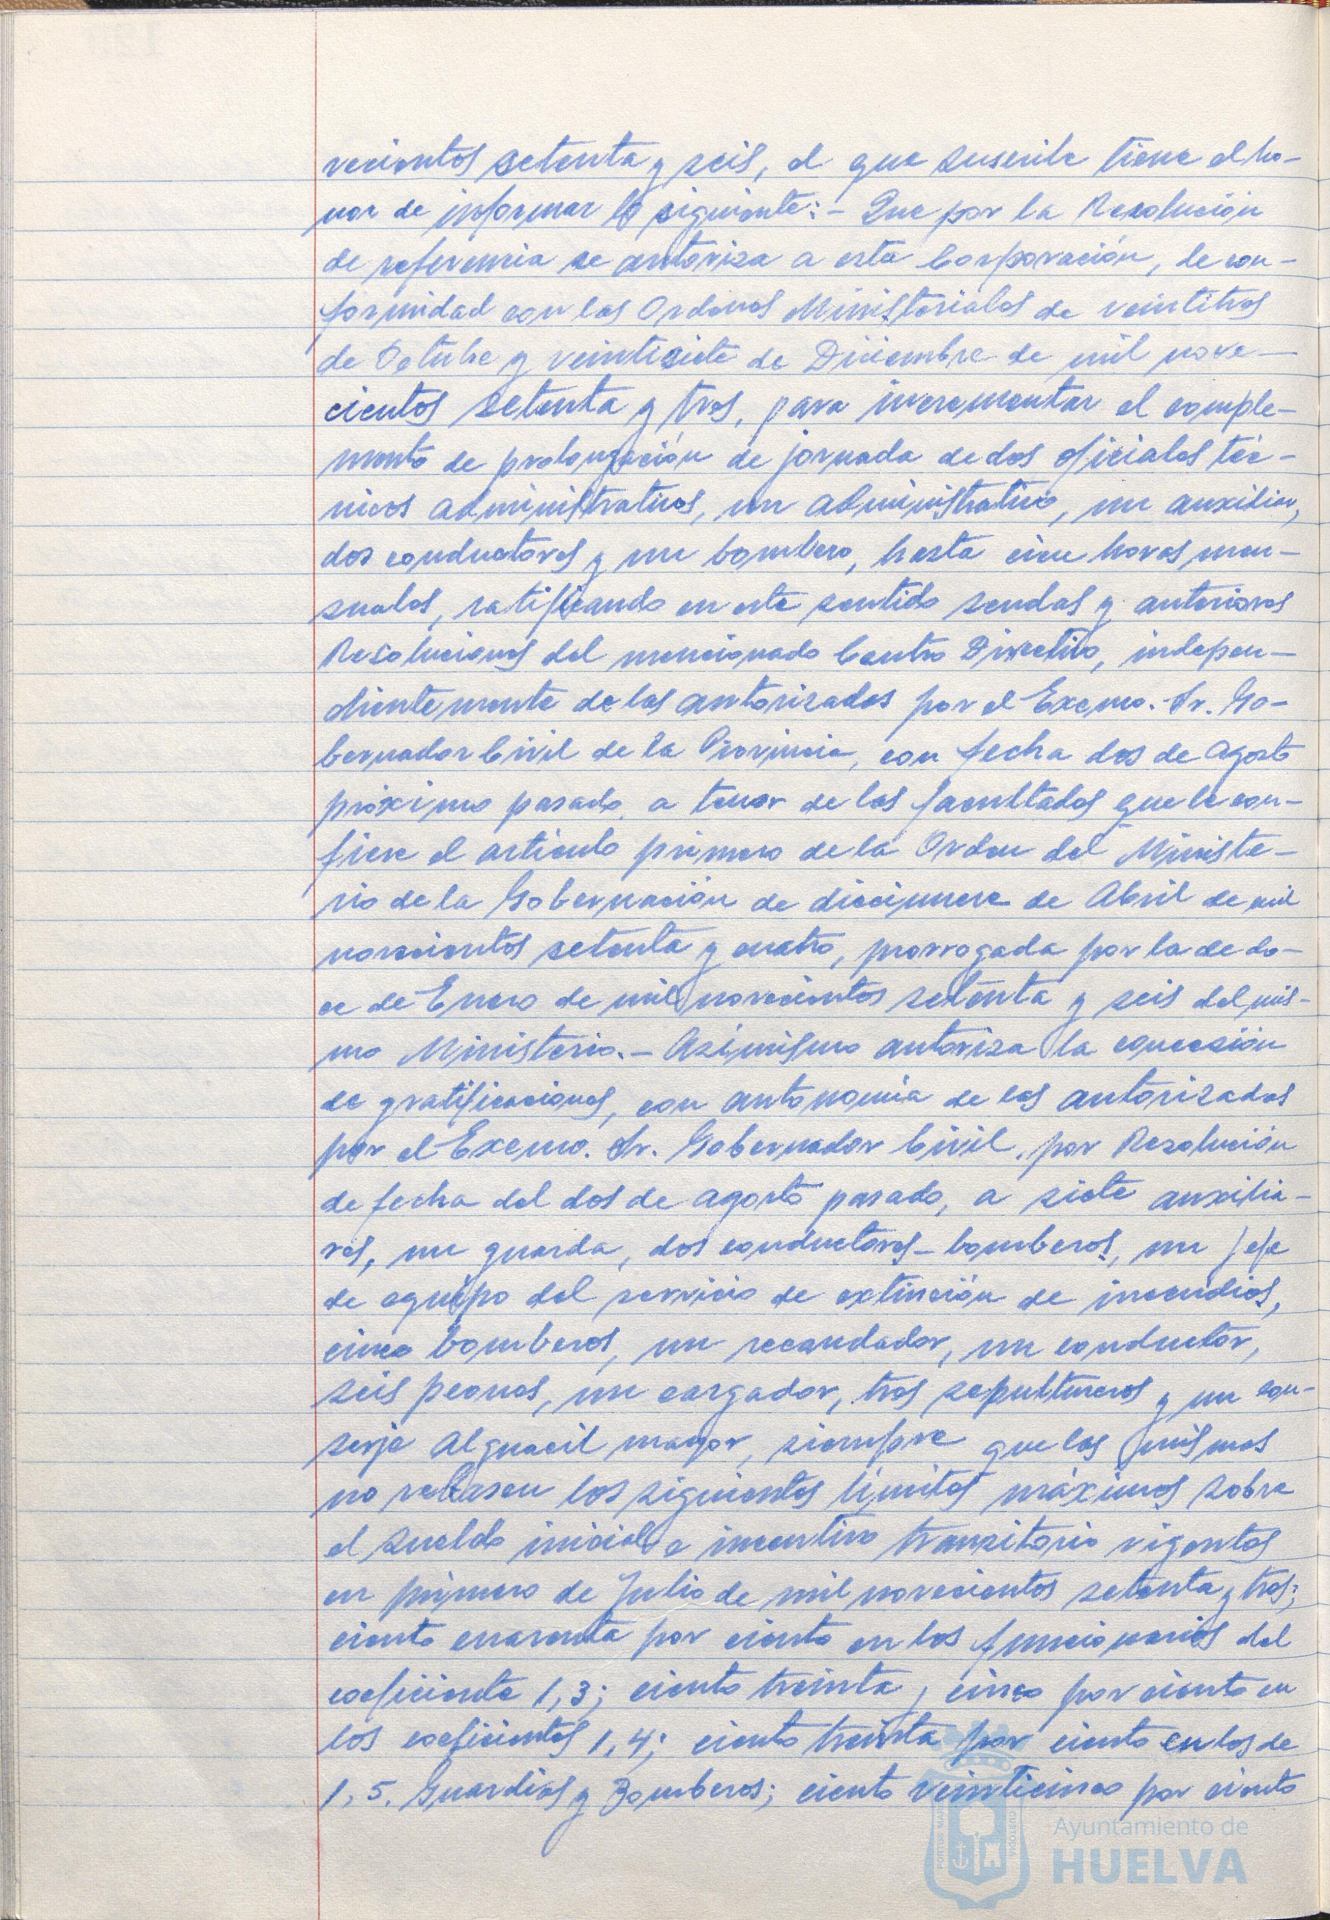 vecientos setenta y seis, el que suscribe tiene el ho-
nor de informar lo siguiente:- Que por la Resolución
de referencia se autoriza a esta Corporación, de con-
formidad con las Ordenes Ministeriales de veintitres
de Octubre y veintisiete de Diciembre de mil nove-
cientos setenta y tres, para incrementar el comple-
mento de prolongación de jornada de dos oficiales téc-
nicos administrativos, un administrativo, un auxiliar,
dos conductores y un bombero, hasta cien horas men-
suales, ratificando en este sentido sendas y anteriores
Resoluciones del mencionado Centro Directivo, indepen-
dientemente de las autorizadas por el Excmo. Sr. Go-
bernador Civil de la Provincia, con fecha dos de Agosto
próximo pasado, a tenor de las facultades que le con-
fiere el artículo primero de la Orden del Ministe-
rio de la Gobernación de diecinueve de Abril de mil
novecientos setenta y cuatro, prorrogada por la de do-
ce de Enero de mil novecientos setenta y seis del mis-
mo Ministerio.- Asimismo autoriza la concesión
de gratificaciones, con autonomía de las autorizadas
por el Excmo. Sr. Gobernador Civil, por Resolución
de fecha del dos de agosto pasado, a siete auxilia-
res, un guarda, dos conductores-bomberos, un jefe
de equipo del servicio de extinción de incendios,
cinco bomberos, un recaudador, un conductor,
seis peones, un cargador, tres sepultureros y un con-
serje Alguacil mayor, siempre que las mismas
no rebasen los siguientes límites máximos sobre
el sueldo inicial e incentivo transitorio vigentes
en primero de Julio de mil novecientos setenta y tres;
ciento cuarenta por ciento en los funcionarios del
coeficiente 1,3; ciento treinta y cinco por ciento en
los coeficientes 1,4; ciento treinta por ciento en los de
1,5. Guardias y Bomberos; ciento veinticinco por ciento
Ayuntamiento de
HUELVA